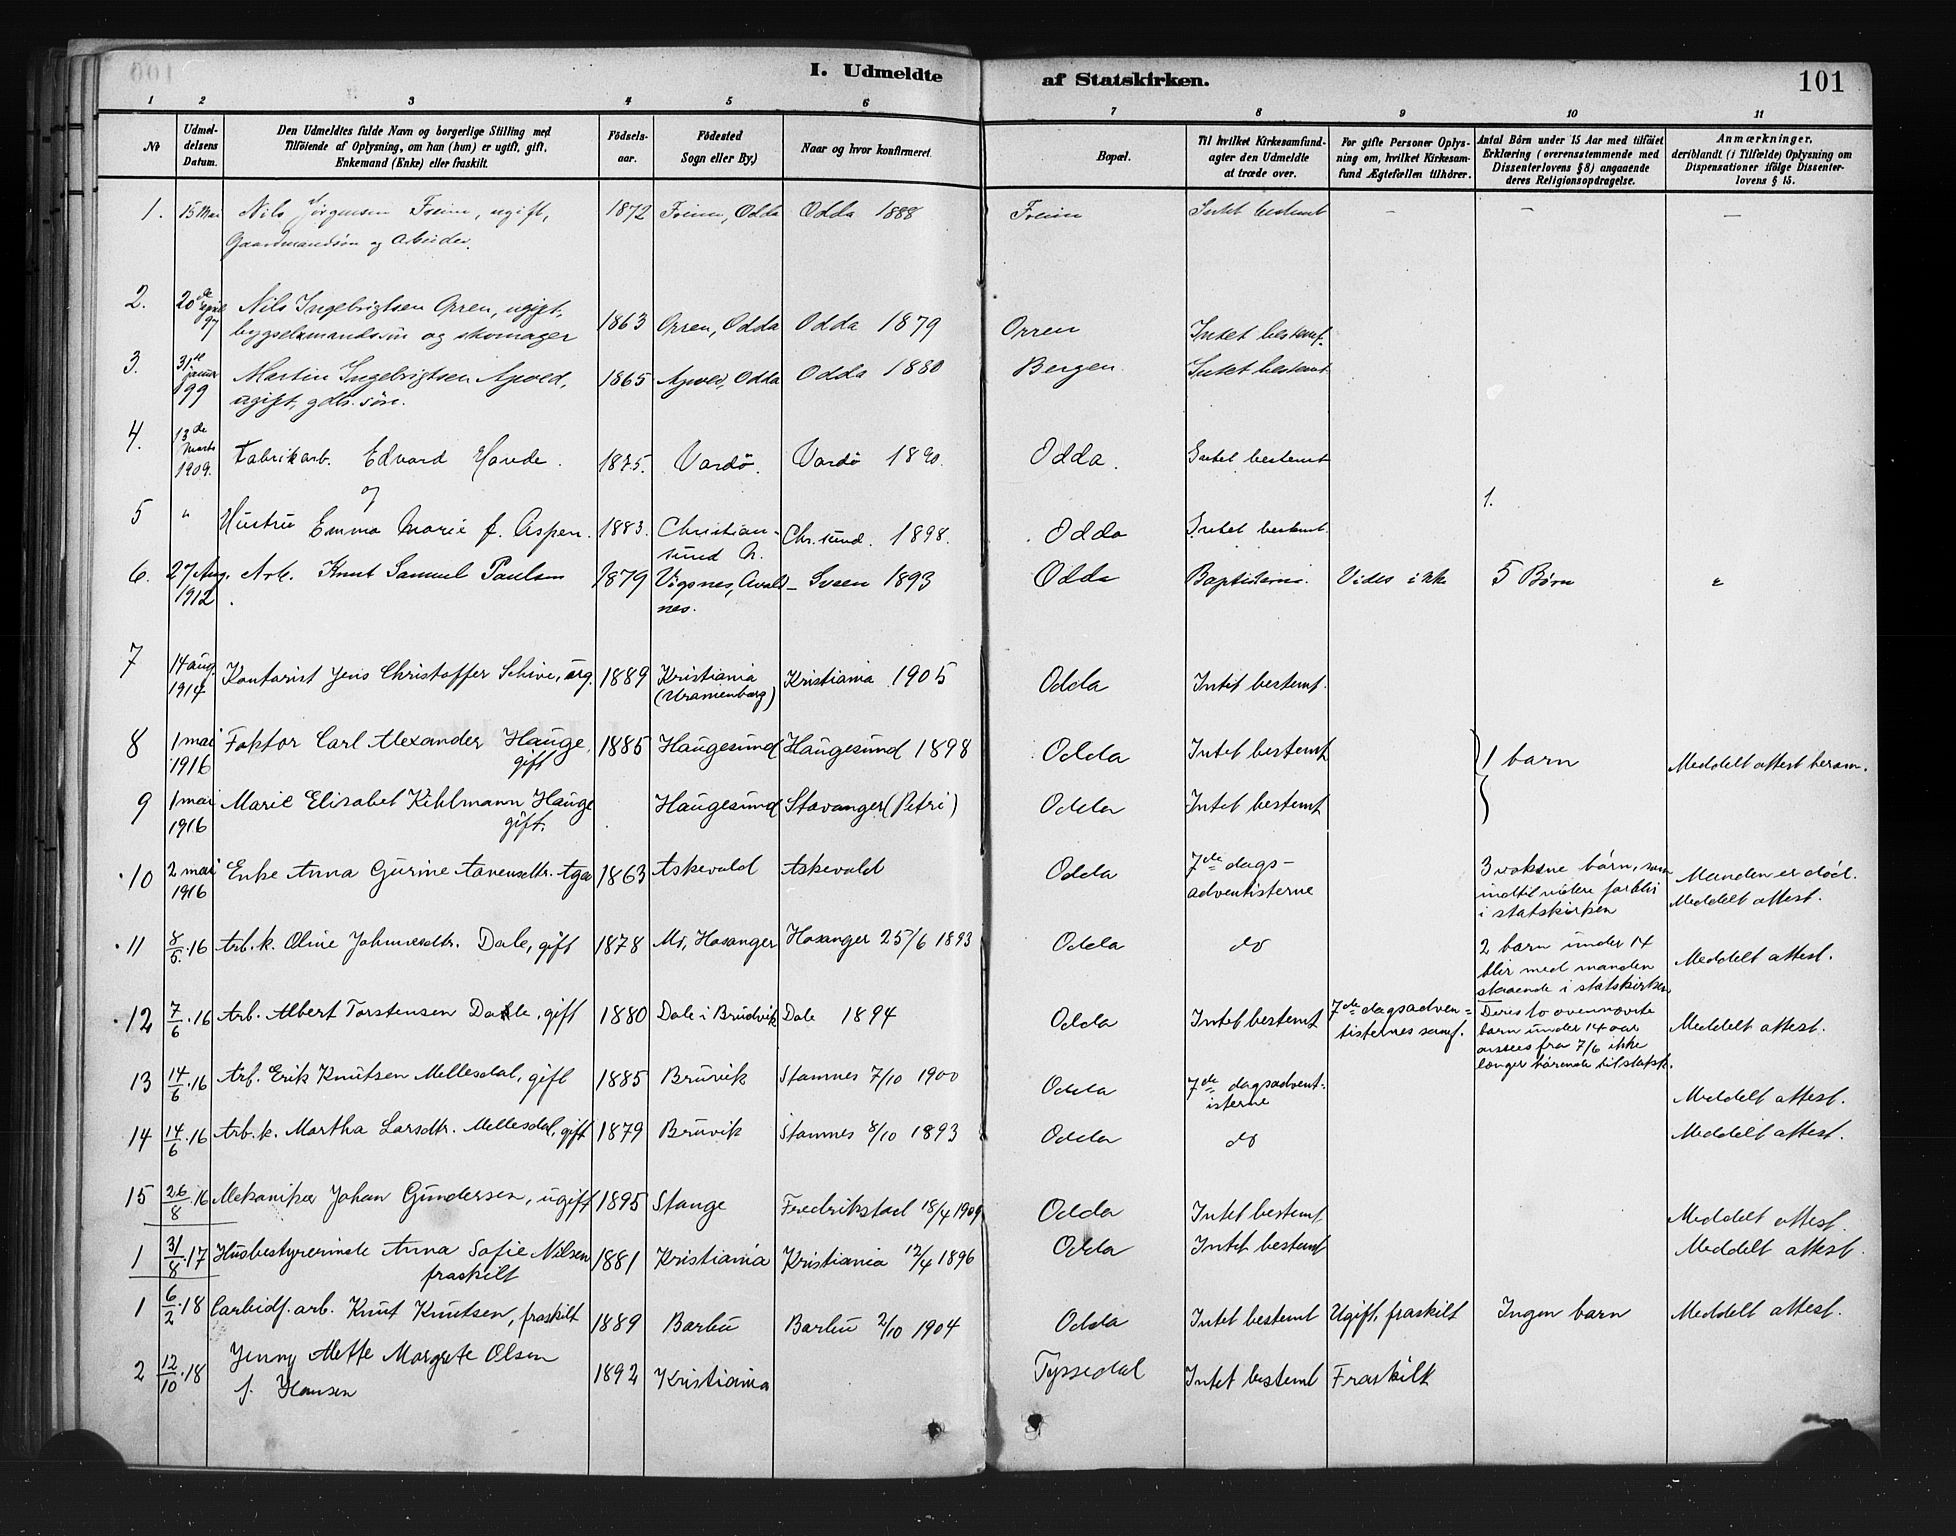 I. Udmeldte af Statskirken. 101
1 2 3 4 5 6 7 8 9 10 11
No Udmeldelsens Datum. Den Udmeldtes fulde Navn og borgerlige Stilling med Tilföiende af Oplysning, om han (hun) er ugift, gift, Enkemand (Enke) eller fraskilt. Födsels-aar. Födested Sogn eller By,) Naar og hvor konfirmeret. Bopæl. Til hvilket Kirkesamfund agter den Udmeldte at træde over. For gifte Personer Oplysning om, hvilket Kirkesamfund Ægtefællen tilhörer. Antal Börn under 15 Aar med tilföiet Erklæring (overensstemmende med Dissenterlovens § 8) angaaende deres Religionsopdragelse. Anmærkninger, deriblandt (i Tilfælde) Oplysning om Dispensationer ifölge Dissenterlovens § 15.
1. 15 Mai Nils Jørgensen Freim, ugift, Gaardmandsøn og Arbeider. 1872 Freim, Odda Odda 1888 Freim Intet bestemt – – –
2. 20de april 97 Nils Ingebrigtsen Orren, ugift, bygselmandssøn og skomager 1863 Orren, Odda Odda 1879 Orren Intet bestemt.
3. 31te januar 99 Martin Ingebrigtsen Apold, ugift, gdbr. søn. 1865 Apold, Odda Odda 1880 Bergen. Intet bestemt
4. 13de Marts 1909. Fabrikarb. Edvard Havde. 1875. Vardö. Vardö 1890. Odda. Intet bestemt
og
5 " Hustru Emma Marie f. Aspen. 1883. Christiansund N. Chr.sund. 1898. Odda Intet bestemt 1.
6. 27 Aug. 1912. Arb. Knut Samuel Paulsen 1879 Vigsnes, Avaldsnes. Sveen 1893 Odda Baptisterne. Vides ikke 5 Børn "
7 14 aug. 1914 Kontorist Jens Christoffer Schive, ug. 1889 Kristiania (Uranienborg) Kristiania 1905 Odda Intet bestemt.
8 1 mai 1916 Faktor Carl Alexander Hauge, gift 1885 Haugesund Haugesund 1898 Odda Intet bestemt 1 barn Meddelt attest herom.
9 1 mai 1916 Marie Elisabet Kihlmann Hauge gift. Haugesund Stavanger (Petri) Odda Intet bestemt
10 2 mai 1916 Enke Anna Gurine Aanensdtr. Aga 1863 Askevold Askevold Odda 7de dags-adventisterne 3 voksne børn, som indtil videre forblir i statskirken Manden er død. Meddelt attest.
11 8/5.16 Arb.k. Oline Johannesdtr. Dale, gift 1878 Mo, Hosanger Hosanger 25/6 1893 Odda do 2 barn under 14 blir med manden staaende i statskirken Meddelt attest.
12 7/6.16 Arb. Albert Torstensen Dale, gift 1880 Dale i Bruvik Dale 1894 Odda Intet bestemt 7de dagsadventisternes samf. Deres to ovennævnte barn under 14 aar ansees fra 7/6 ikke længer hørende til statsk. Meddelt attest.
13 14/6.16 Arb. Erik Knutsen Mellesdal, gift 1885 Bruvik Stamnes 7/10 1900 Odda 7de dagsadventisterne Meddelt attest.
14 14/6.16 Arb.k. Martha Larsdtr. Mellesdal, gift 1879 Bruvik Stamnes 8/10 1893 Odda do Meddelt attest.
15 26/8.16 Mekaniker Johan Gundersen, ugift 1895 Stange Fredrikstad 18/4 1909 Odda Intet bestemt Meddelt attest.
1 31/8.17 Husbestyrerinde Anna Sofie Nilsen fraskilt 1881 Kristiania Kristiania 12/4 1896 Odda Intet bestemt Meddelt attest.
1 6/2.18 Carbidf. arb. Knut Knutsen, fraskilt 1889 Barbu Barbu 2/10 1904 Odda Intet bestemt Ugift, fraskilt Ingen barn Meddelt attest.
2 12/10.18 Jenny Mette Margrete Olsen f. Hansen 1892 Kristiania Tyssedal Intet bestemt Fraskilt